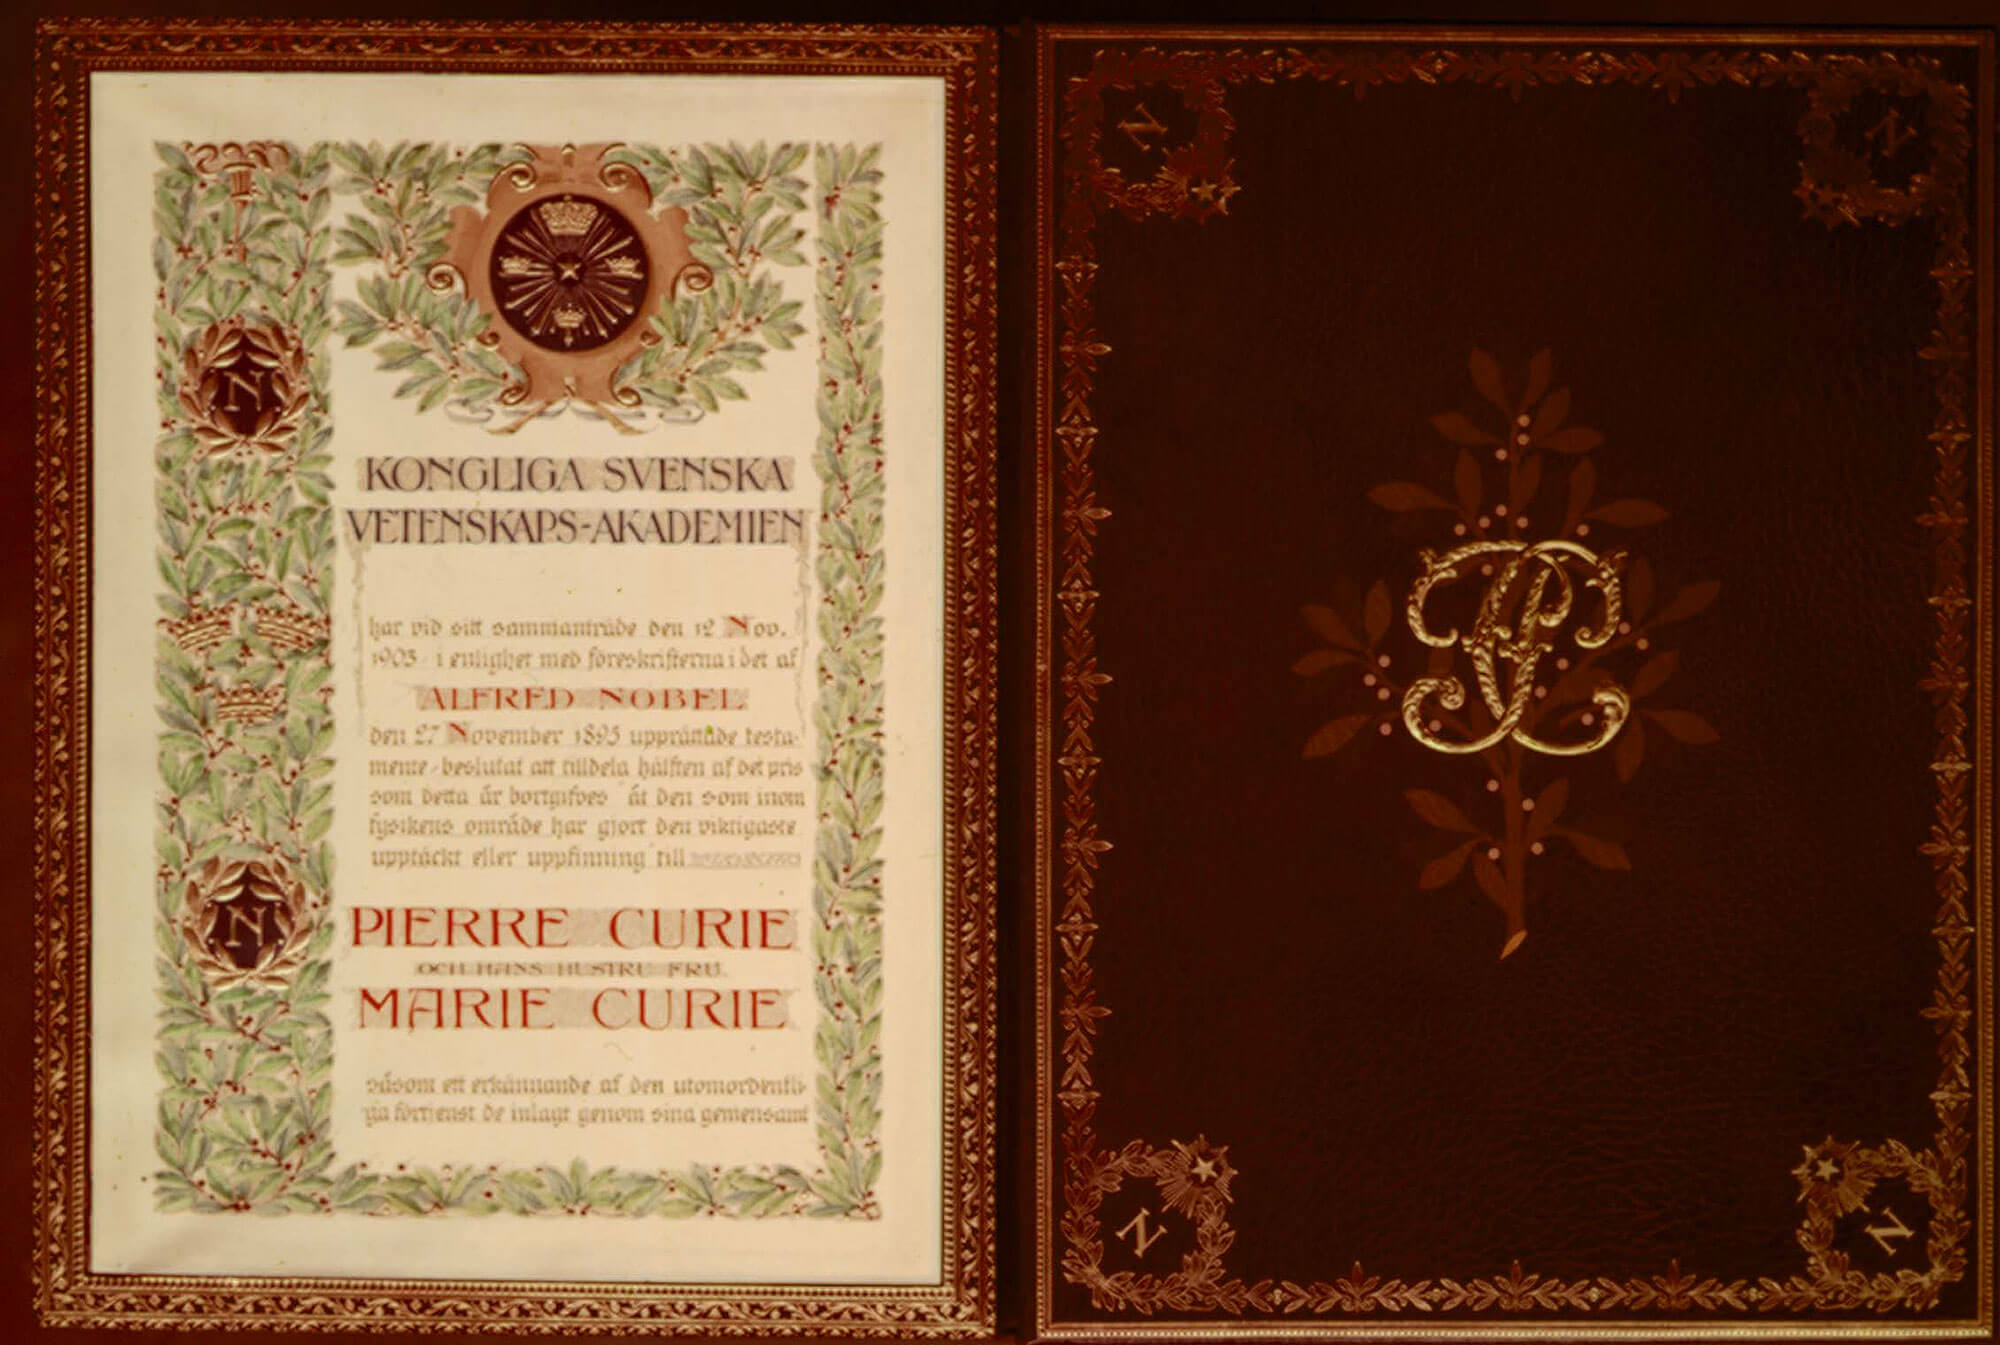 N
N
KONGLIGA SVENSKA
VETENSKAPS-AKADEMIEN
har vid sitt sammanträde den 12 Nov.
1903 i enlighet med föreskrifterna i det af
ALFRED NOBEL
den 27 November 1895 upprättade testa-
mente beslutat att tilldela hälften af det pris
som detta år bortgifves åt den som inom
fysikens område har gjort den viktigaste
upptäckt eller uppfinning till
PIERRE CURIE
OCH HANS HUSTRU FRU
MARIE CURIE
såsom ett erkännande af den utomordentli-
ga förtjenst de inlagt genom sina gemensamt
N
N
PC
N
N